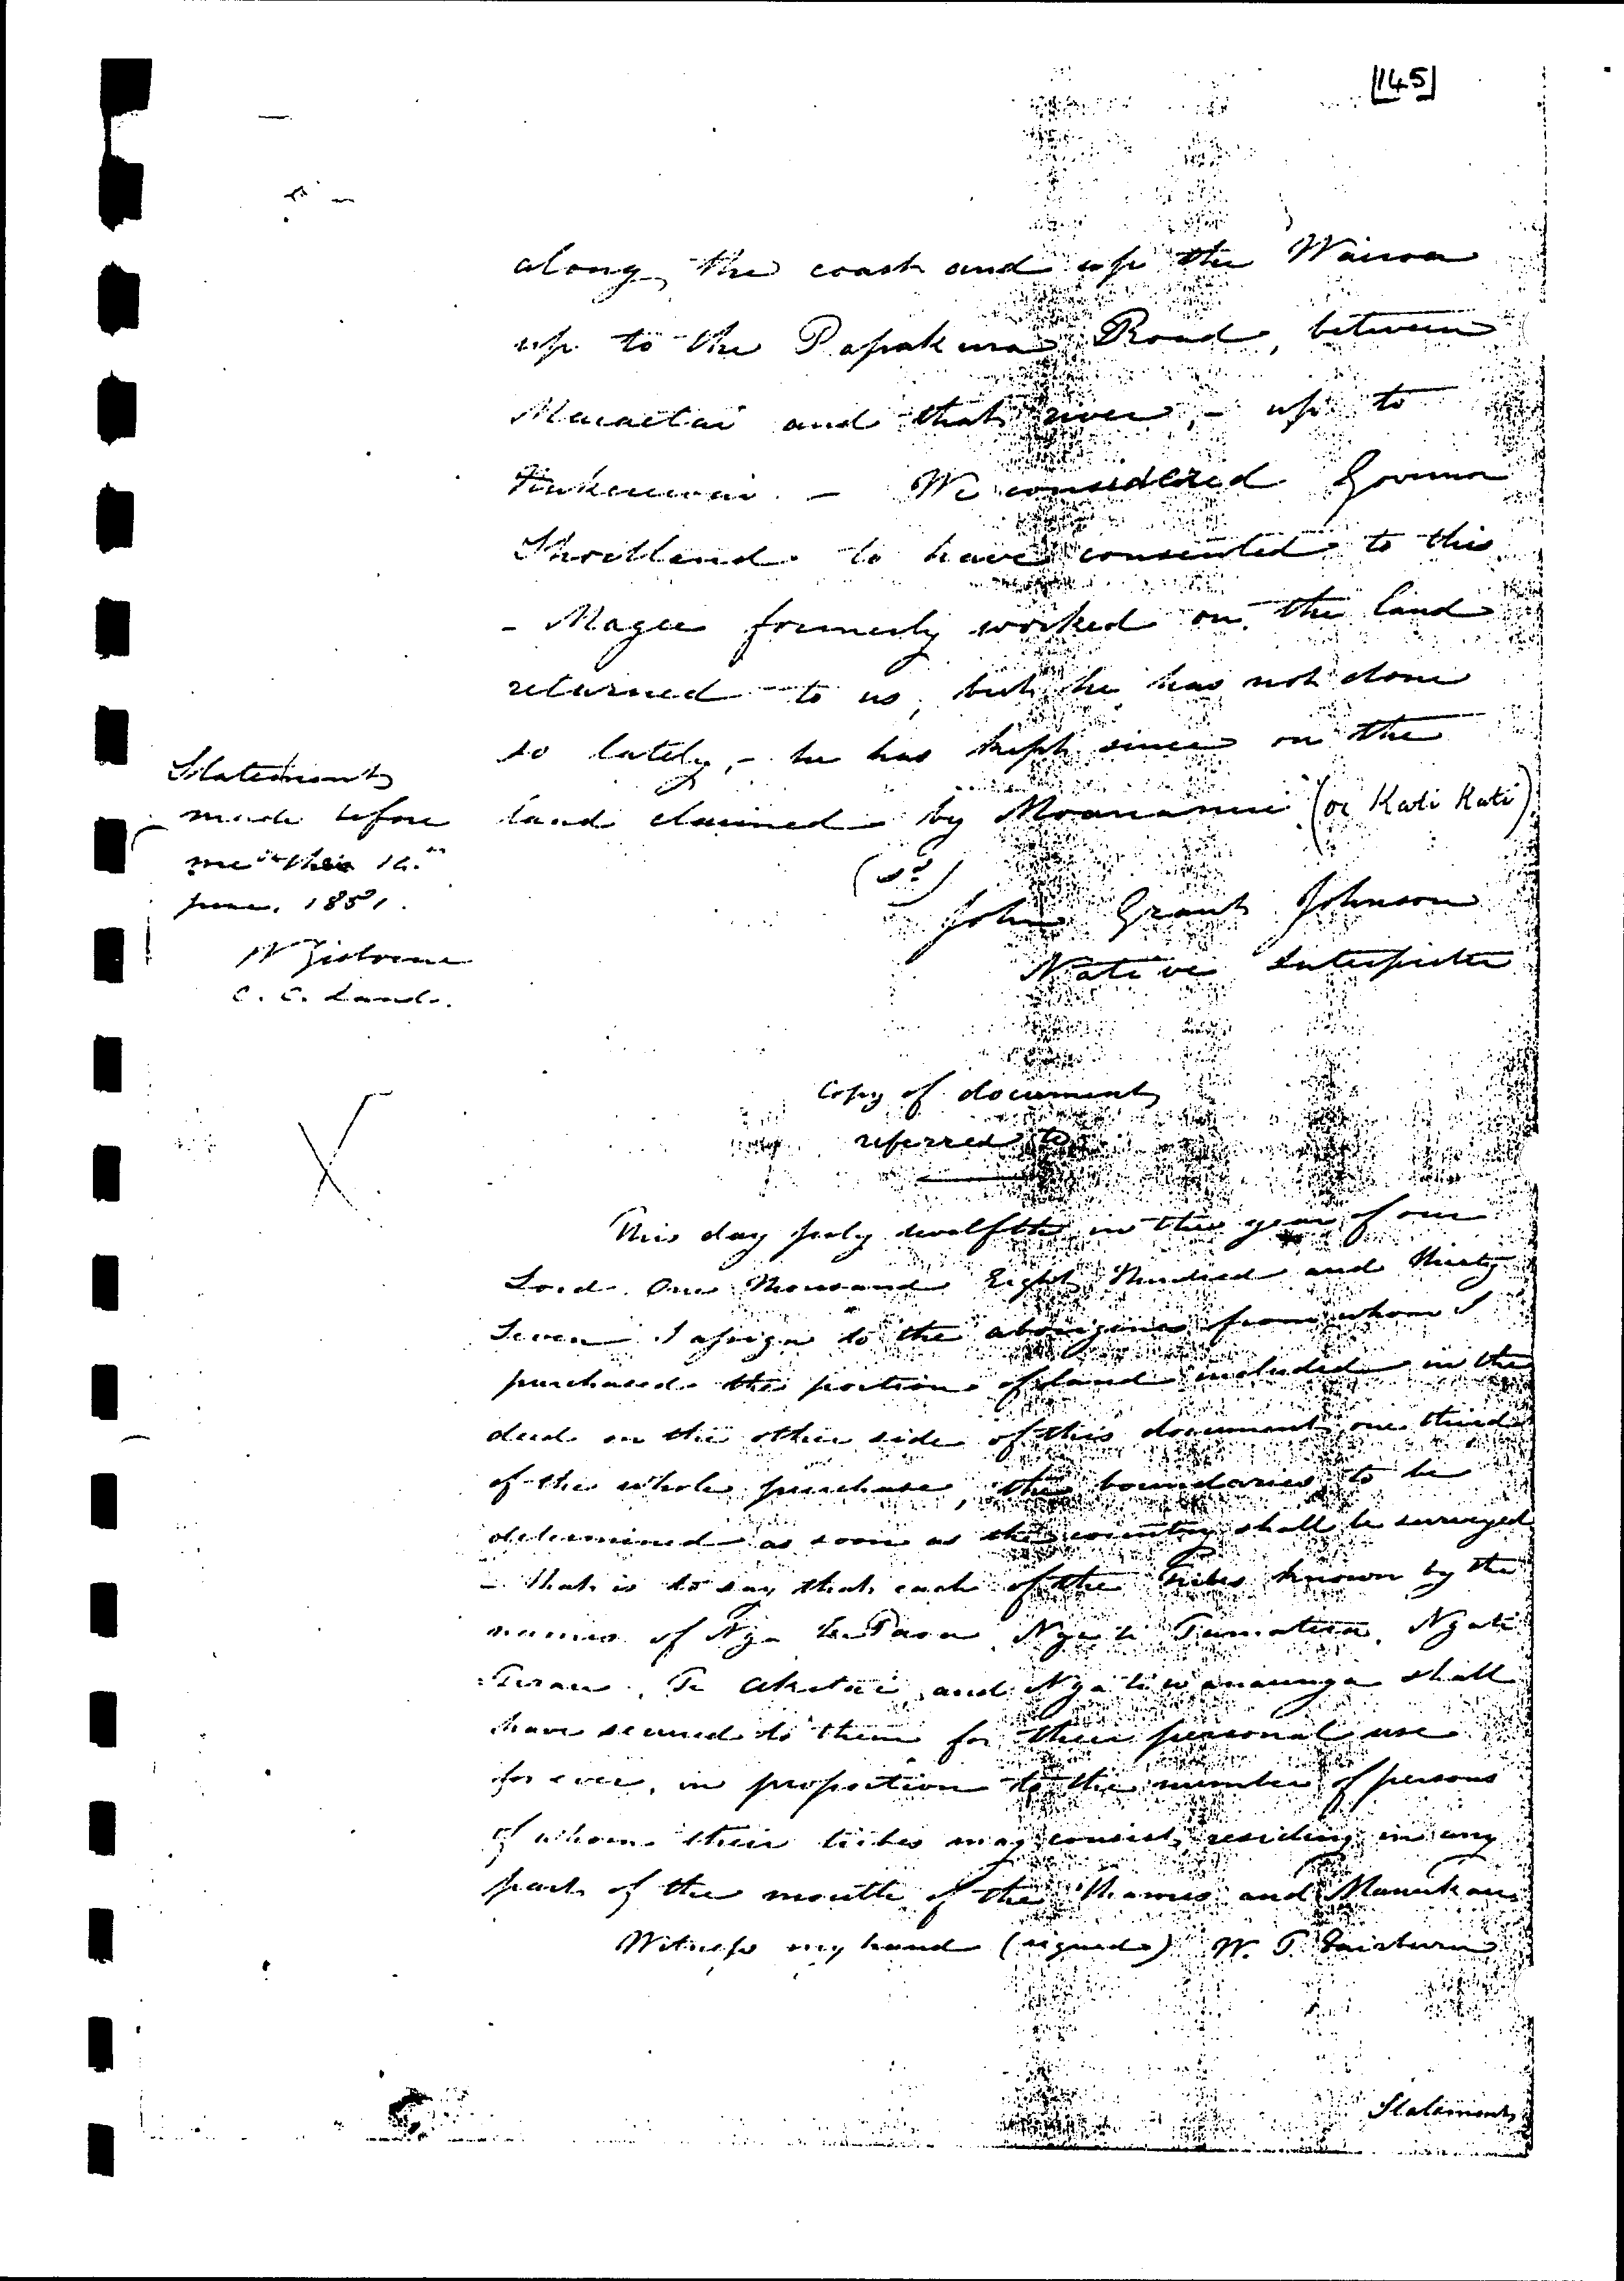 [145]
along the coast and up the Wairoa
up to the Papakura Road, between
Maraetai and that river, - up to
- We considered Governor
Shortland to have consented to this
- Magee formerly worked on the land
returned to us, but he has not done
so lately, - he has kept since on the
land claimed by Moananui (or Kati Kati)
(sd)
John Grant Johnson
Native Interpreter
Statement
made before
me this 12th
June, 1851.
W Gisborne
C. C. Lands.
Copy of document
referred to
This day July twelfth in the year of our
Lord One Thousand Eight Hundred and Thirty
Seven I assign to the aborigines from whom I
purchased the portion of land included in the
deed on the other side of this document one third
of the whole purchase, the boundaries to be
determined as soon as the country shall be surveyed
- that is to say that each of the Tribes known by the
names of Nga te Paoa, Nga ti Tamatera, Ngati
Terau, Te Akitai, and Nga ti wanaunga shall
have secured to them for their personal use
for ever, in proportion to the number of persons
of whom their tribes may consist, residing in any
part of the mouth of the Thames and Manukau
Witness my hand (signed) W. T. Fairburn
Statement